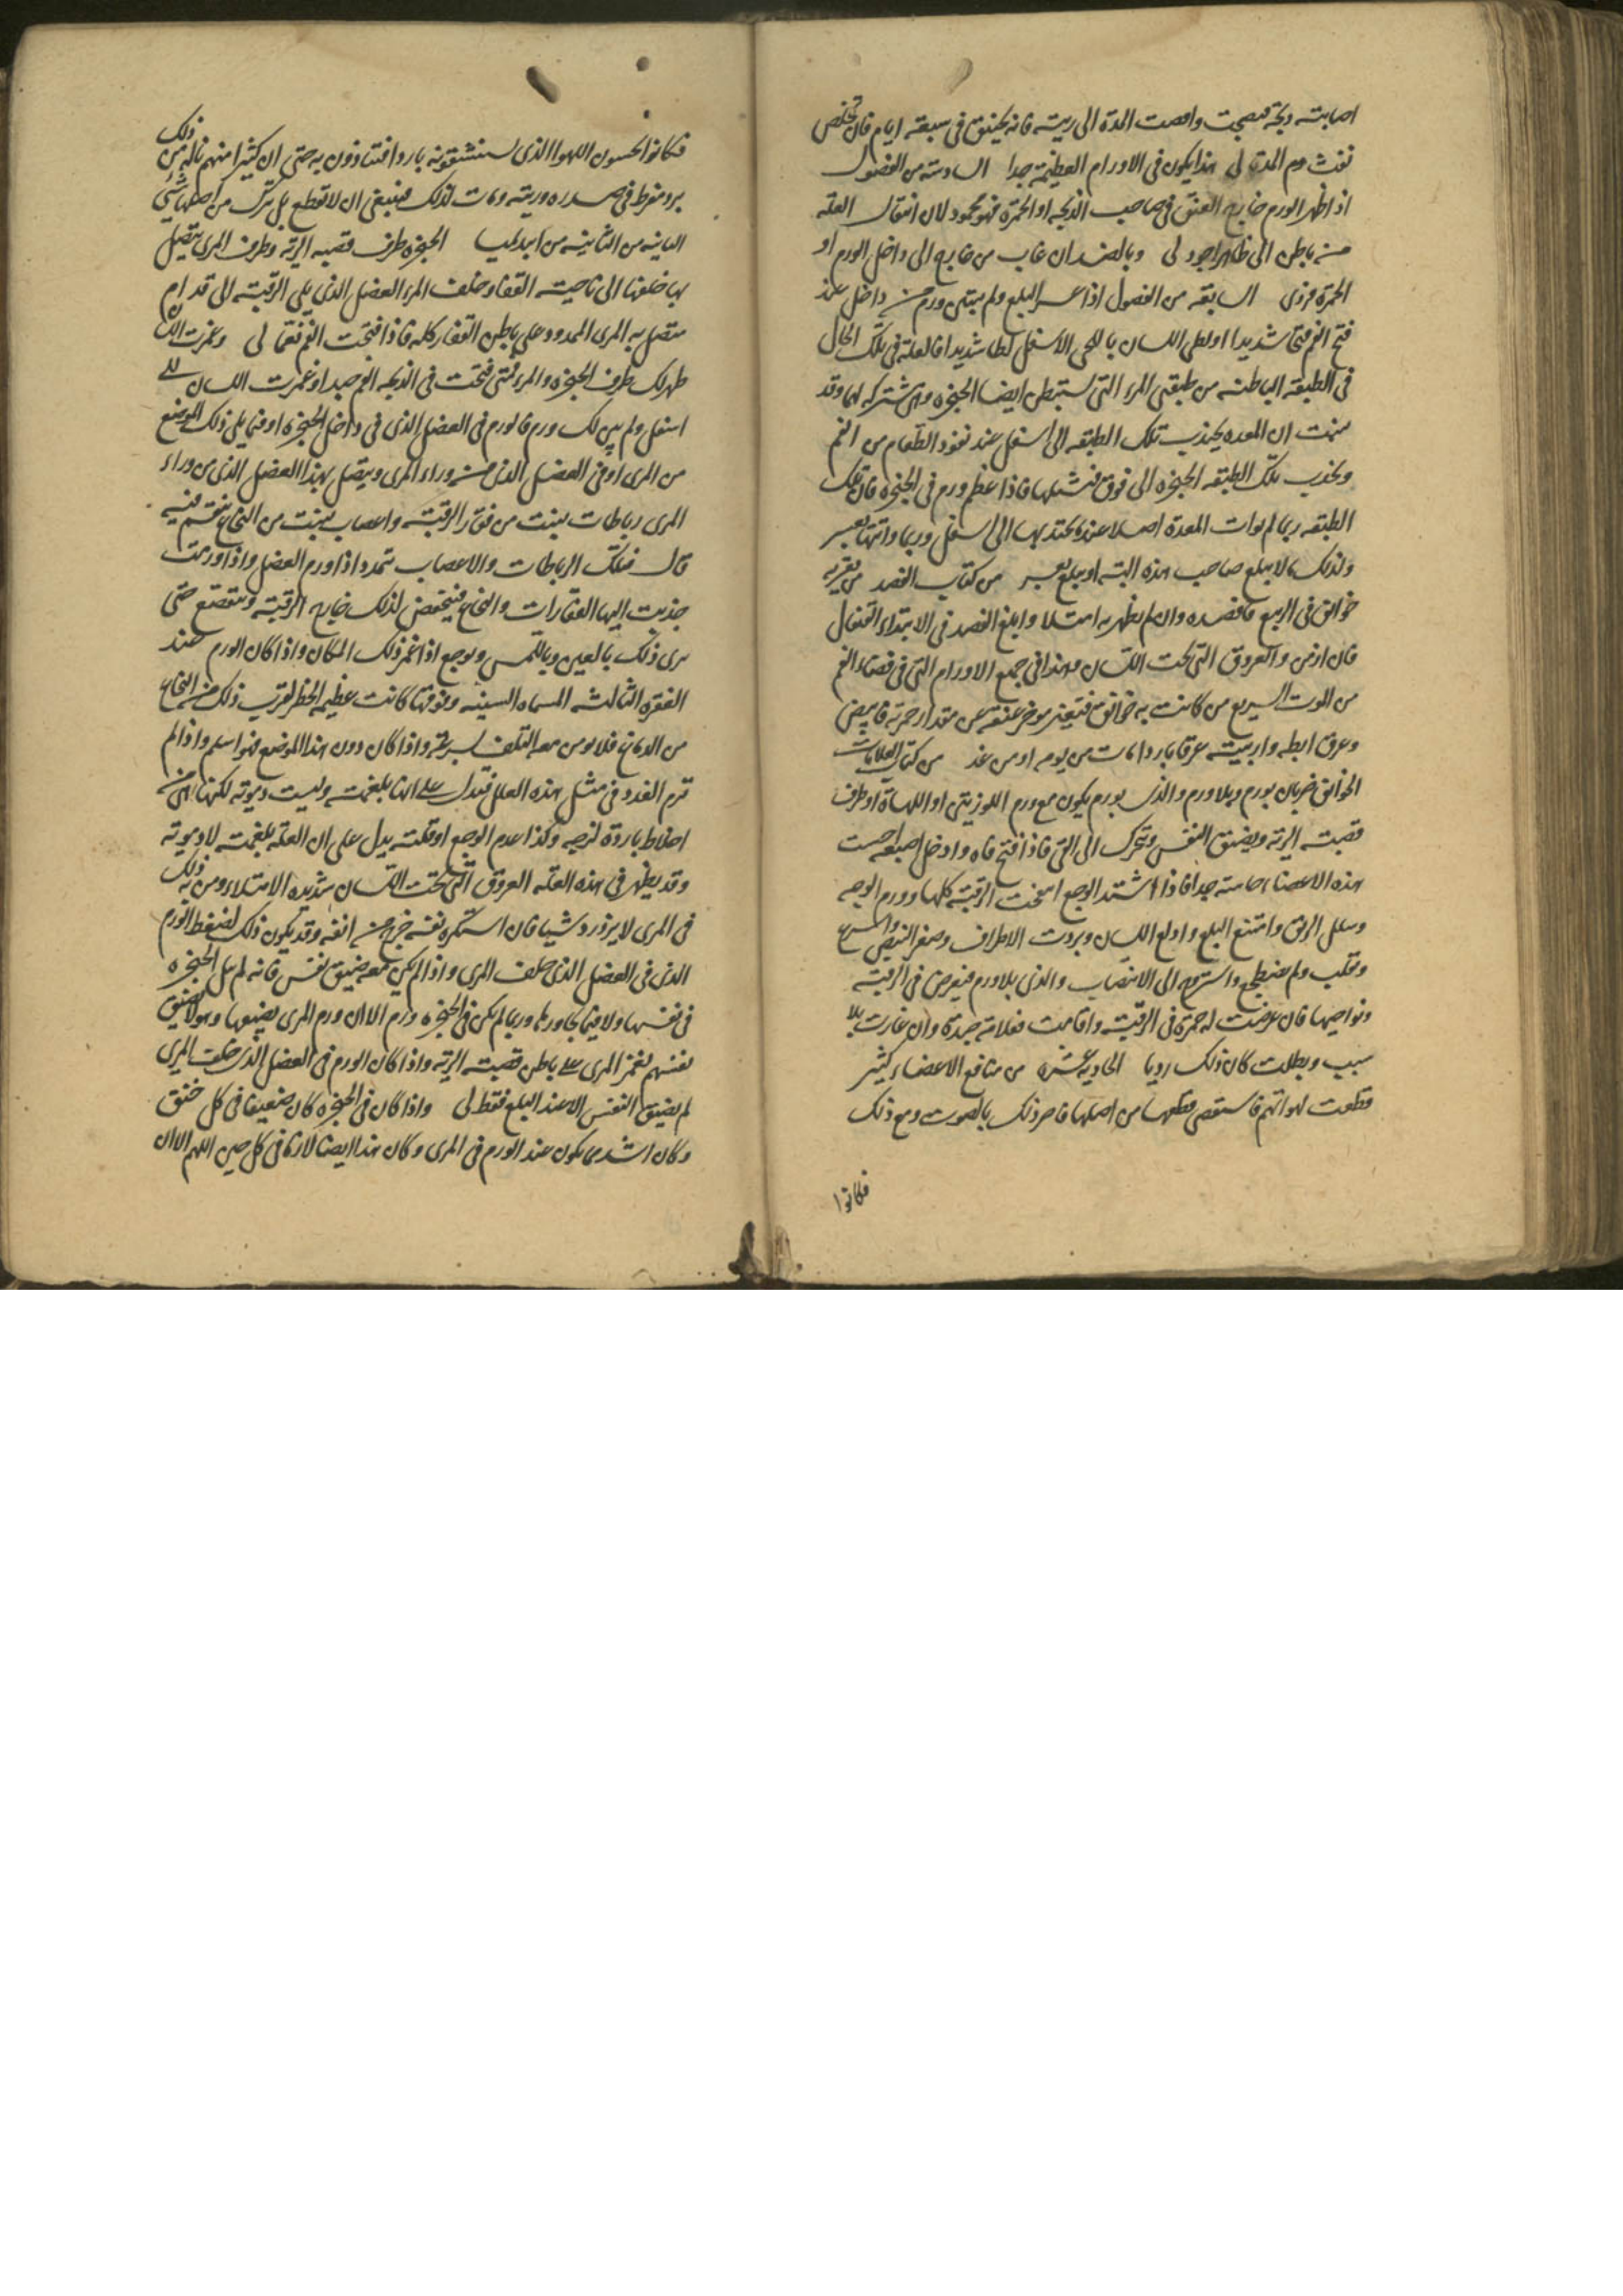 اصابته ذبحة فنضجت وافضت المدة الى ريته فانه يختنق فى سبعة ايام فان تخلص
نفث دم المدة لى هذا يكون فى الاورام العظيمة جدا السادسة من الفصول
اذا ظهر الورم خارج العنق فى صاحب الذبحة او الحمرة فهو محمود لان انتقال العلة
من باطن الى ظاهر اجود لى وبالضد ان غاب من خارج الى داخل الورم او
الحمرة فردى السابعة من الفصول اذا عسر البلع ولم يتبين ورم من داخل عند
فتح الفم فتحا شديدا او لطى اللسان باللحى الاسفل لطا شديدا فالعلة فى تلك الحال
فى الطبقة الباطنة من طبقتى المرى التى تستبطن ايضا الحنجرة وهى مشتركة لهما وقد
ان المعدة يجذب تلك الطبقة الى اسفل عند نفوذ الطعام من الفم
ويجذب تلك الطبقة الحنجرة الى فوق فاذا عظم ورم فى الحنجرة فان تلك
الطبقة ربما لم توات المعدة اصلا عند تجتذبها الى اسفل وربما واتتها بعسر
ولذلك لا يبلع صاحب هذه البتة او يبلع بعسر من كتاب الفصد من يعتريه
خوانيق فى الربيع فافصده وان لم يظهر به امتلا وابلغ الفصد فى الابتداء القيفال
فان ازمن والعروق التى تحت اللسان وهذا فى جميع الاورام التى فى فضاء الفم
من الموت السريع من كانت به خوانيق فتغير موخر عنقه عن مقدار حمرته فابيض
وعرق ابطه واربيته عرقا باردا مات من يومه او من غد من كتاب العلامات
الخوانيق ضربان بورم وبلا ورم والذى بورم يكون مع ورم اللوزتين او اللهاة او طرف
قصبة الرية ويضيق النفس وتحرك الى القى فاذا فتح فاه وادخل اصبعه احست
هذه الاعضاء حاسة جدا فاذا اشتد الوجع انتفخت الرقبة كلها وورم الوجه
وسيل الريق وامتنع البلع واولع اللسان وبردت الاطراف وصغر النبض واسرع
وتقلب ولم يضطجع واستروح الى الانتصاب والذى بلا ورم فيعرض فى الرقبة
ونواحيها فان عرضت له حمرة فى الرقبة واقامت فعلامة جيدة وان غارت بلا
سبب وبطلت كان ذلك رديا الحادية عشرة من منافع الاعضاء كثير
قطعت لهواتهم فاستقصى قطعها من اصلها فاضر ذلك بالصوت ومع ذلك
فكانوا
فكانوا يحسون الهوا الذى يستنشقونه باردا فيتاذون به حتى ان كثيرا منهم ناله من ذلك
برد مفرط فى صدره وريته ومات لذلك فينبغى ان لا تقطع بل تترك من اصلها شى
الثانية من الثانية من ابيديميا الحنجرة طرف قصبة الرية وطرف المرى يتصل
بها خلفها الى ناحية القفا وخلف المرى العضل الذى يلى الرقبة الى قدام
متصل به المرى الممدود على باطن القفار كله فاذا فتحت الفم نعما لى وغمزت اللسان
ظهر لك طرف الحنجرة والمرى فمتى فتحت فى الذبحة الفم جدا وغمزت اللسان على
اسفل ولم يبن لك ورم فالورم فى العضل الذى فى داخل الحنجرة او فيما يلى ذلك الموضع
من المرى او فى العضل الذى من وراء المرى ويتصل بهذا العضل الذى من وراء
المرى رباطات ينبت من فقار الرقبة واعصاب ينبت من النخاع ينقسم فيه
قال فتلك الرباطات والاعصاب تمدد اذا ورم العضل واذا ورمت
جذبت اليها الفقارات والنخاع فينخفض لذلك خارج الرقبة وتتقصع حتى
يرى ذلك بالعين وباللمس ويوجع اذا غمز ذلك المكان واذا كان الورم عند
الفقرة الثالثة المسماه السنية وفوقها كانت عظيم الخطر لقرب ذلك من النخاع
من الدماغ فلا يومن معه التلف بسرعة واذا كان دون هذا الموضع فهو اسلم واذا لم
ترم الغدد فى مثل هذه العلل فتدل على انها بلغمية وليست دموية لكنها من
اخلاط باردة لزجه وكذا عدم الوجع او قلته يدل على ان العلة بلغمية لا دموية
وقد يظهر فى هذه العلة العروق التى تحت اللسان شديدة الامتلاء ومن به ذلك
فى المرى لا يزدرد شيا فان استكره نفسه خرج من انفه وقد يكون ذلك لضغط الورم
الذى فى العضل الذى خلف المرى واذا لم يكن معه ضيق نفس فانه لم ينل الحنجرة
فى نفسها ولا فيما يجاورها وربما لم يكن فى الحنجرة ورم الا ان ورم المرى يضيقها وهولا ضيق
نفسهم لغمز المرى على باطن قصبة الرية واذا كان الورم فى العضل الذى خلف المرى
لم يضيق النفس الا عند البلع فقط لى واذا كان فى الحنجرة كان ضعيفا فى كل خنق
وكان اشد ما يكون عند الورم فى المرى وكان هذا ايضا لازما فى كل حين اللهم الا ان